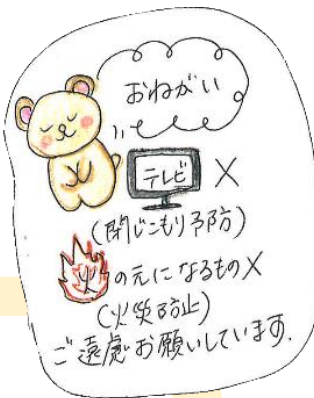 おねがい
テレビ X
(閉じこもり予防)
火の元になるものX
(火災防止)
ご遠慮お願いしています.